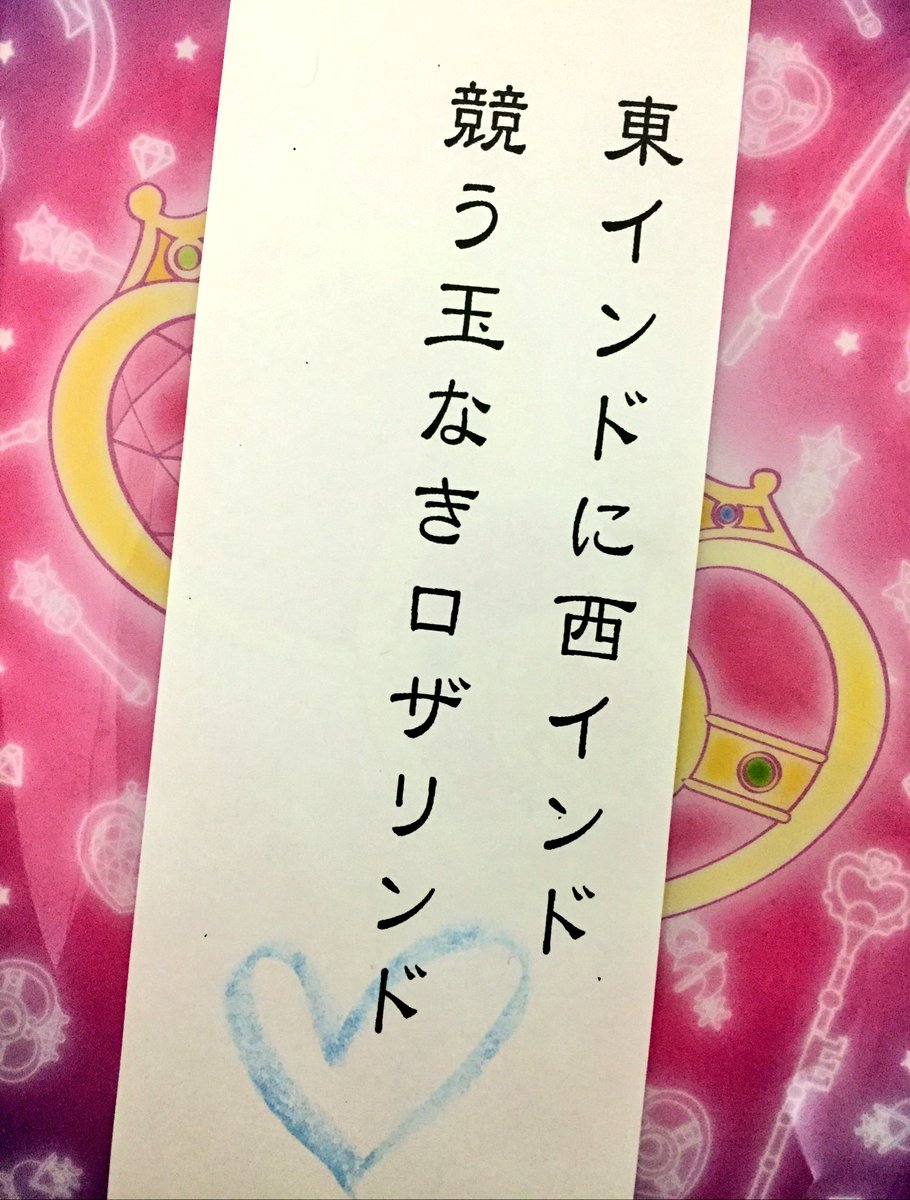 東インドに西インド
競う玉なきロザリンド